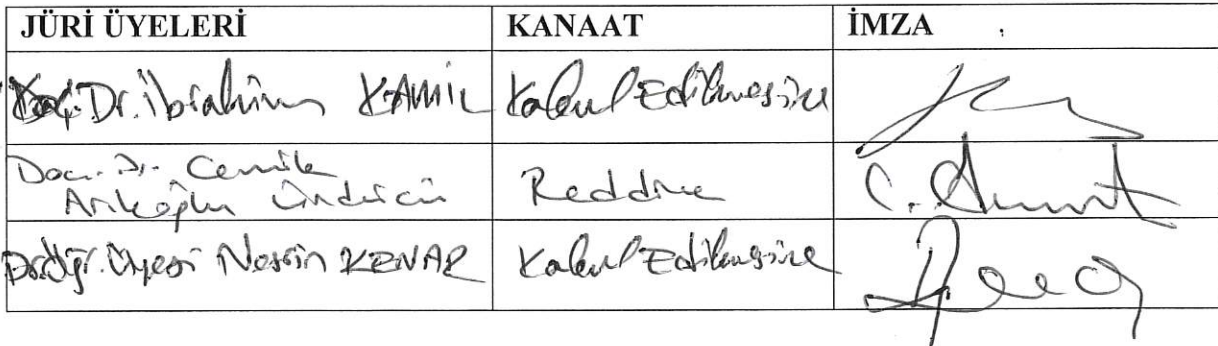 JÜRİ ÜYELERİ KANAAT İMZA
Doç. Dr. İbrahim KAMİL Kabul Edilmesine
Doç. Dr. Cemile
Arıkoğlu Ündücü Reddine
Dr. Öğr. Üyesi Nesrin KENAR Kabul Edilmesine